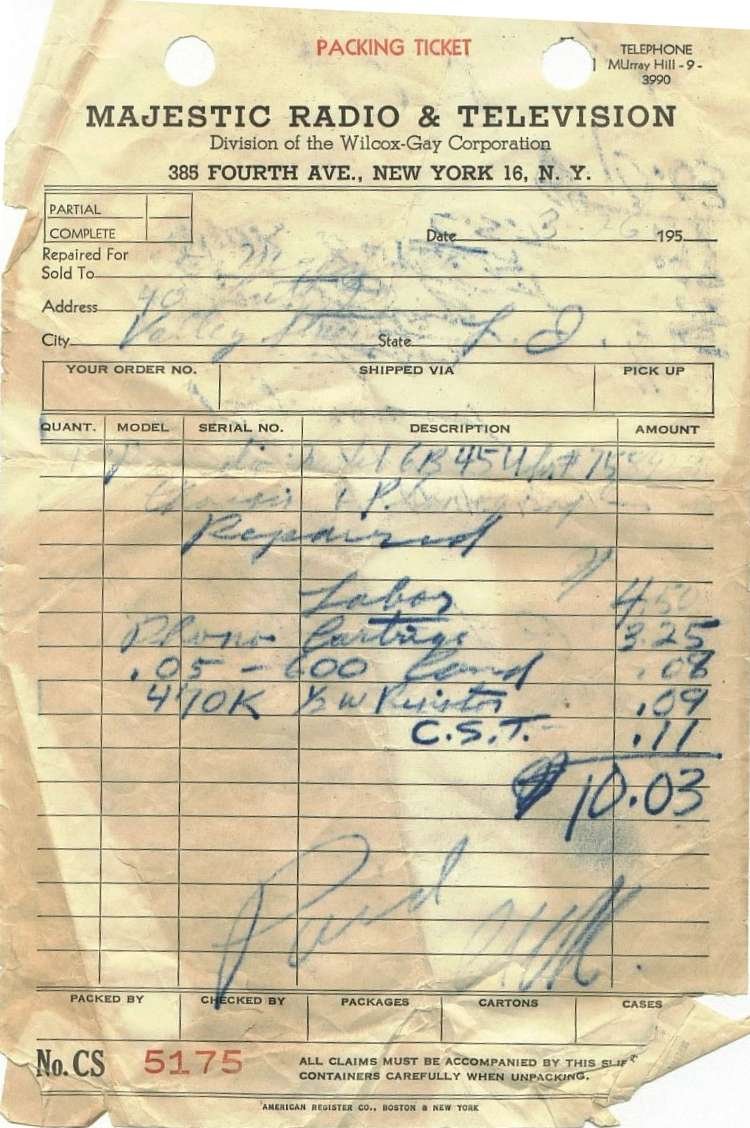 PACKING TICKET
TELEPHONE
MUrray Hill - 9 -
3990
MAJESTIC RADIO & TELEVISION
Division of the Wilcox-Gay Corporation
385 FOURTH AVE., NEW YORK 16, N. Y.
PARTIAL
COMPLETE
Date 195
Repaired For
Sold To
Address 40 South
City Valley Stream State L. I.
YOUR ORDER NO. SHIPPED VIA PICK UP
QUANT. MODEL SERIAL NO. DESCRIPTION AMOUNT
6B 45U
Chassis & Phonograph
Repaired
Labor 4.50
Phono Cartrige 3.25
.05 - 600 Cond .08
470K ½ W Resistor .09
C.S.T. .11
$ 10.03
Paid
PACKED BY CHECKED BY PACKAGES CARTONS CASES
No. CS 5175
ALL CLAIMS MUST BE ACCOMPANIED BY THIS SLIP
CONTAINERS CAREFULLY WHEN UNPACKING.
AMERICAN REGISTER CO., BOSTON & NEW YORK